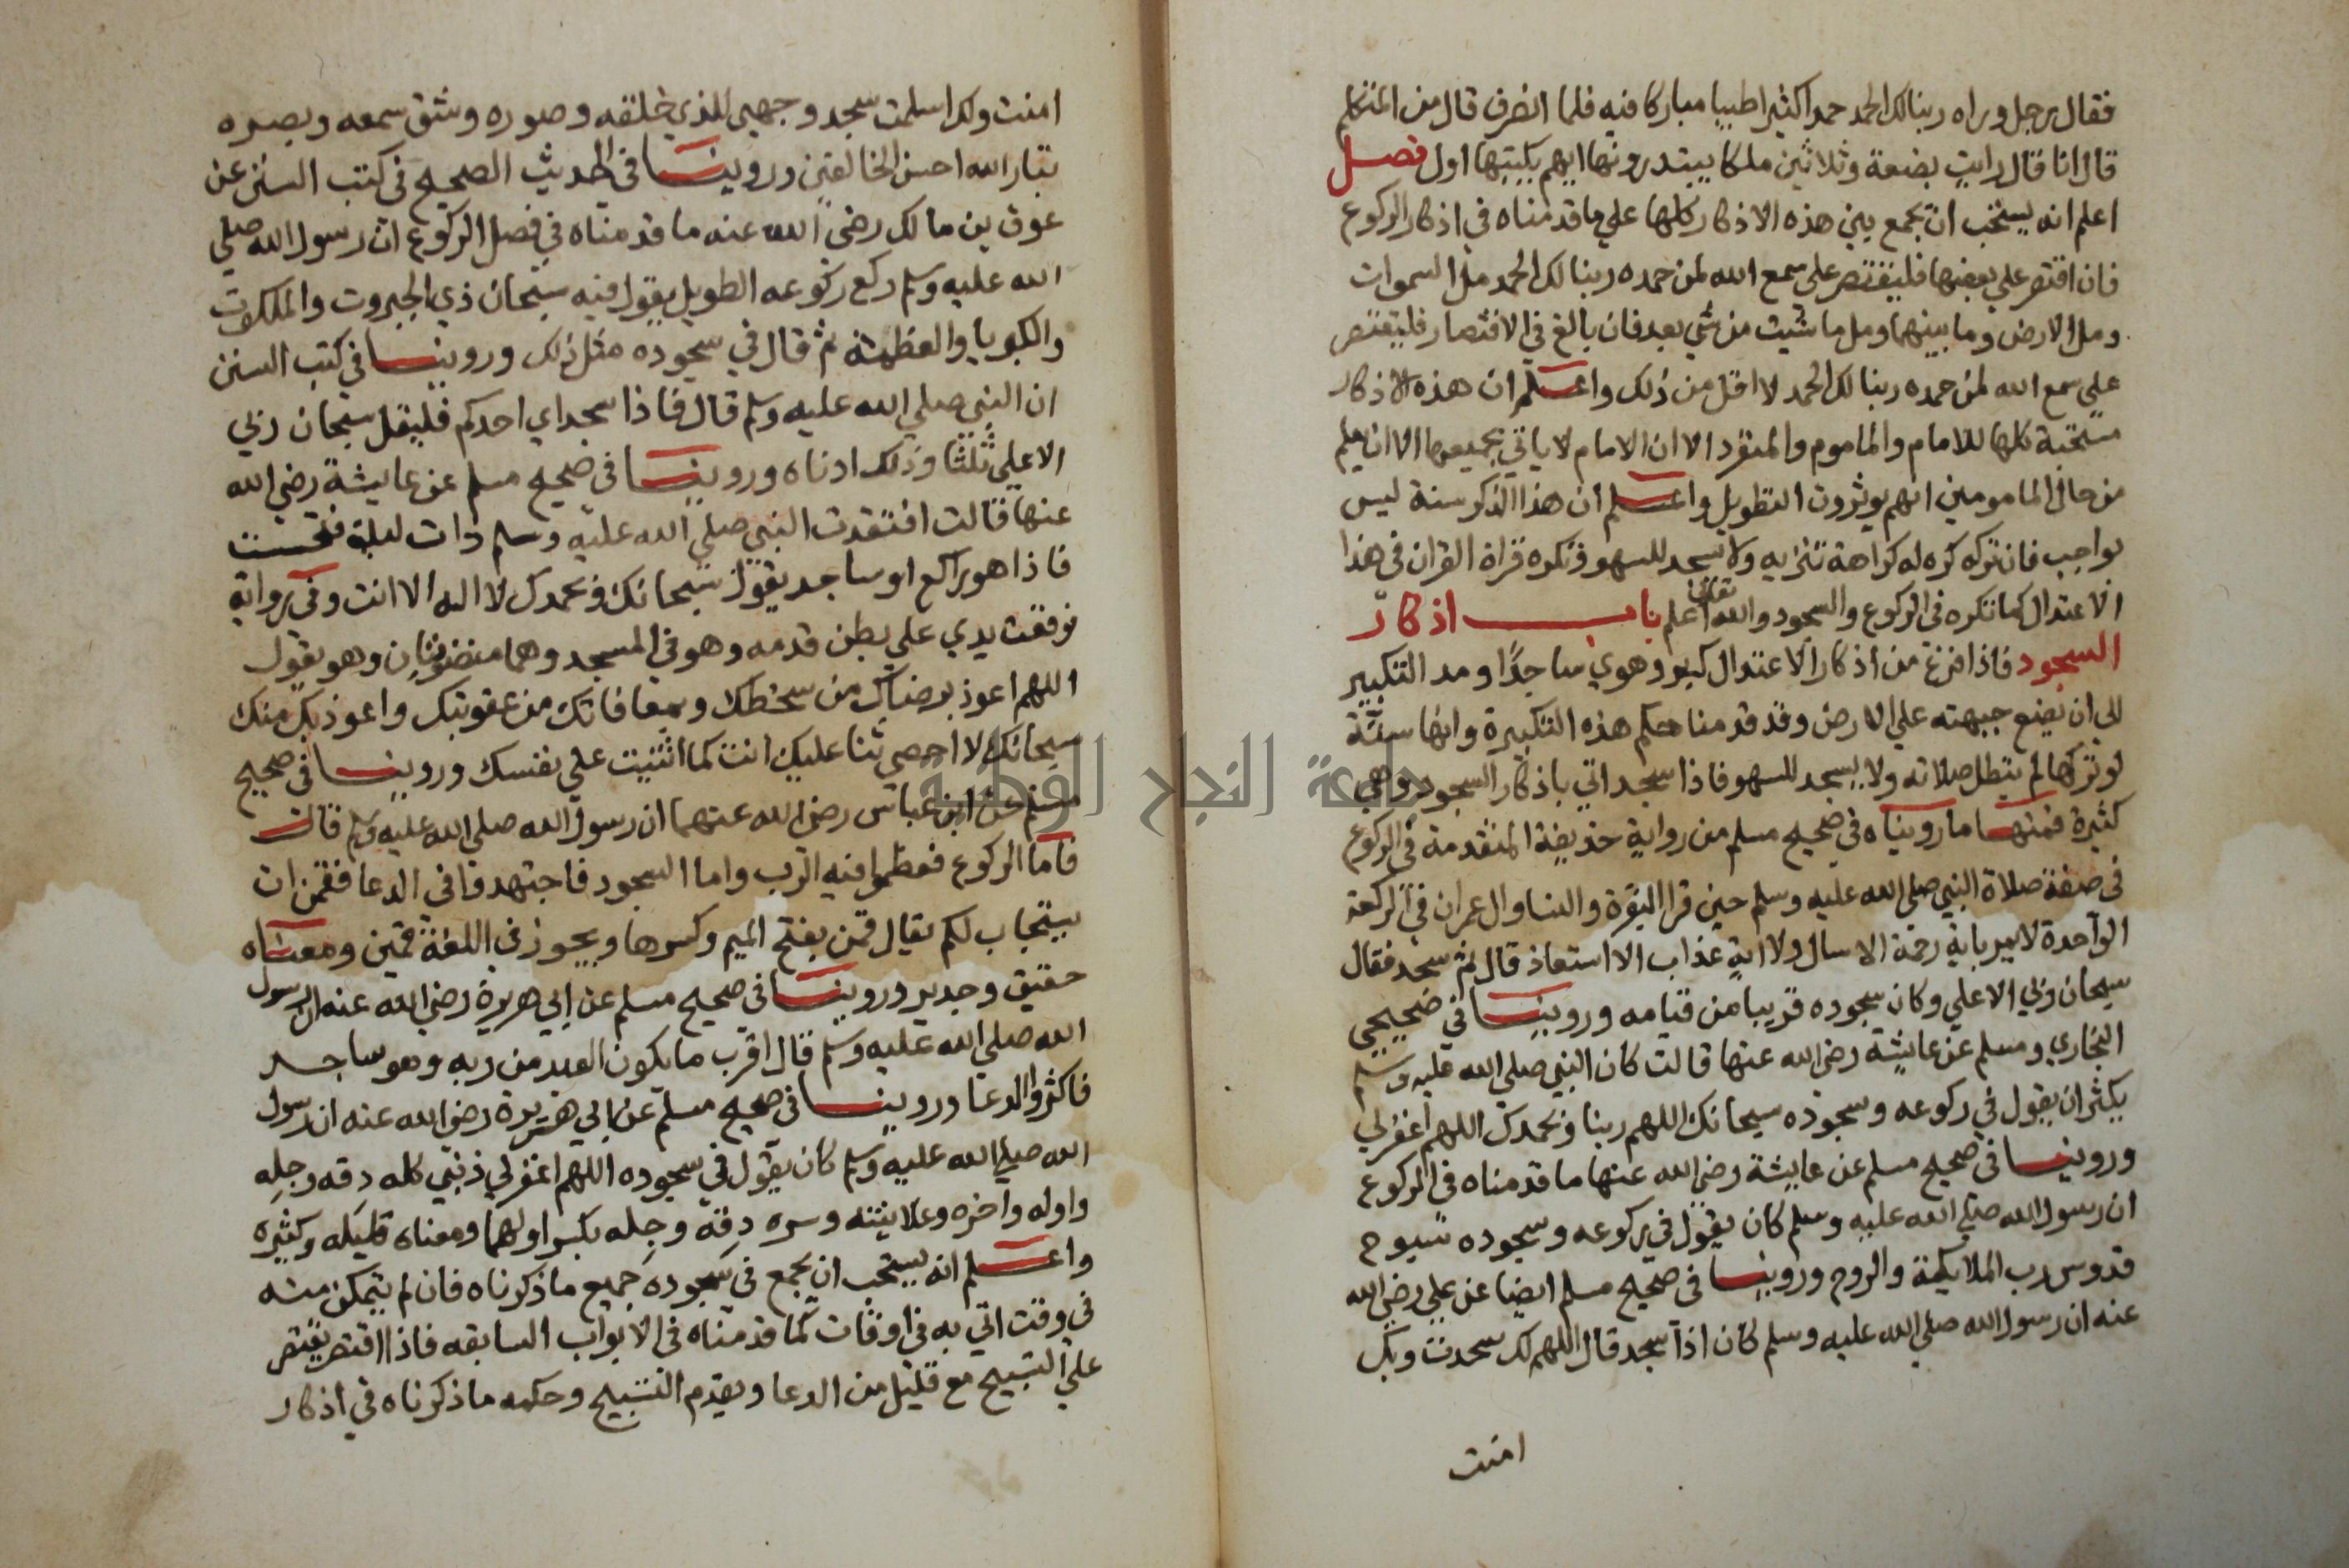 فقال رجل وراه ربنا لك الحمد حمدا كثيرا طيبا مباركا فيه فلما انصرف قال من المتكلم
قال انا قال رايت بضعة وثلاثين ملكا يبتدرونها ايهم يكتبها اول فصل
اعلم انه يستحب ان يجمع بين هذه الاذكار كلها علي ما قدمناه في اذكار الركوع
فان اقتصر علي بعضها فليقتصر علي سمع الله لمن حمده ربنا لك الحمد مل السموات
ومل الارض وما بينهما ومل ما شيت من شي بعد فان بالغ في الاقتصار فليقتصر
علي سمع الله لمن حمده ربنا لك الحمد لا اقل من ذلك واعلم ان هذه الاذكار
مستحبة كلها للامام والماموم والمنفرد الا ان الامام لا ياتي بجميعها الا ان يعلم
من حال المامومين انهم يوثرون التطويل واعلم ان هذا الذكر سنة ليس
بواجب فان تركه كره له كراهة تنزيه ولا يسجد للسهو وتكره قراة القران في هذا
الاعتدال كما تكره في الركوع والسجود والله تعالى اعلم باب اذكار
السجود فاذا فرغ من اذكار الاعتدال كبر وهوي ساجدا ومد التكبير
الي ان يضع جبهته علي الارض وقد قدمنا حكم هذه التكبيرة وانها سنة
لو تركها لم تبطل صلاته ولا يسجد للسهو فاذا سجد اتي باذكار السجود وهي
كثيرة فمنها ما رويناه في صحيح مسلم من رواية حذيفة المتقدمة في الركوع
في صفة صلاة النبي صلي الله عليه وسلم حين قرا البقرة والنسا وال عمران في الركعة
الواحدة لا يمر باية رحمة الا سال ولا اية عذاب الا استعاذ قال ثم سجد فقال
سبحان ربي الاعلي وكان سجوده قريبا من قيامه وروينا في صحيحي
البخاري ومسلم عن عايشة رضي الله عنها قالت كان النبي صلي الله عليه وسلم
يكثر ان يقول في ركوعه وسجوده سبحانك اللهم ربنا وبحمدك اللهم اغفر لي
وروينا في صحيح مسلم عن عايشة رضي الله عنها ما قدمناه في الركوع
ان رسول الله صلي الله عليه وسلم كان يقول في ركوعه وسجوده سبوح
قدوس رب الملايكة والروح وروينا في صحيح مسلم ايضا عن علي رضي الله
عنه ان رسول الله صلي الله عليه وسلم كان اذا سجد قال اللهم لك سجدت وبك
امنت
امنت ولك اسلمت سجد وجهي للذي خلقه وصوره وشق سمعه وبصره
تبارك الله احسن الخالقين وروينا في الحديث الصحيح في كتب السنن عن
عوف بن مالك رضي الله عنه ما قدمناه في فصل الركوع ان رسول الله صلي
الله عليه وسلم ركع ركوعه الطويل يقول فيه سبحان ذي الجبروت والملكوت
والكبريا والعظمة ثم قال في سجوده مثل ذلك وروينا في كتب السنن
ان النبي صلي الله عليه وسلم قال فاذا سجد اي احدكم فليقل سبحان ربي
الاعلي ثلثا وذلك ادناه وروينا في صحيح مسلم عن عايشة رضي الله
عنها قالت افتقدت النبي صلي الله عليه وسلم ذات ليلة فتحسست
فاذا هو راكع او ساجد يقول سبحانك وبحمدك لا اله الا انت وفي رواية
فوقعت يدي علي بطن قدمه وهو في المسجد وهما منصوبتان وهو يقول
اللهم اعوذ برضاك من سخطك وبمعافاتك من عقوبتك واعوذ بك منك
سبحانك لا احصي ثنا عليك انت كما اثنيت علي نفسك وروينا في صحيح
مسلم عن ابن عباس رضي الله عنهما ان رسول الله صلي الله عليه وسلم قال
فاما الركوع فعظموا فيه الرب واما السجود فاجتهدوا في الدعا فقمن ان
يستجاب لكم يقال قمن بفتح الميم وكسرها ويجوز في اللغة قمين ومعناه
حقيق وجدير وروينا في صحيح مسلم عن ابي هريرة رضي الله عنه ان رسول
الله صلي الله عليه وسلم قال اقرب ما يكون العبد من ربه وهو ساجد
فاكثروا الدعا وروينا في صحيح مسلم عن ابي هريرة رضي الله عنه ان رسول
الله صلي الله عليه وسلم كان يقول في سجوده اللهم اغفر لي ذنبي كله دقه وجله
واوله واخره وعلانيته وسره دقه وجله بكسر اولهما ومعناه قليله وكثيره
واعلم انه يستحب ان يجمع في سجوده جميع ما ذكرناه فان لم يتمكن منه
في وقت اتي به في اوقات كما قدمناه في الابواب السابقه فاذا اقتصر يقتصر
علي التسبيح مع قليل من الدعا ويقدم التسبيح وحكمه ما ذكرناه في اذكار
جامعة النجاح الوطنية